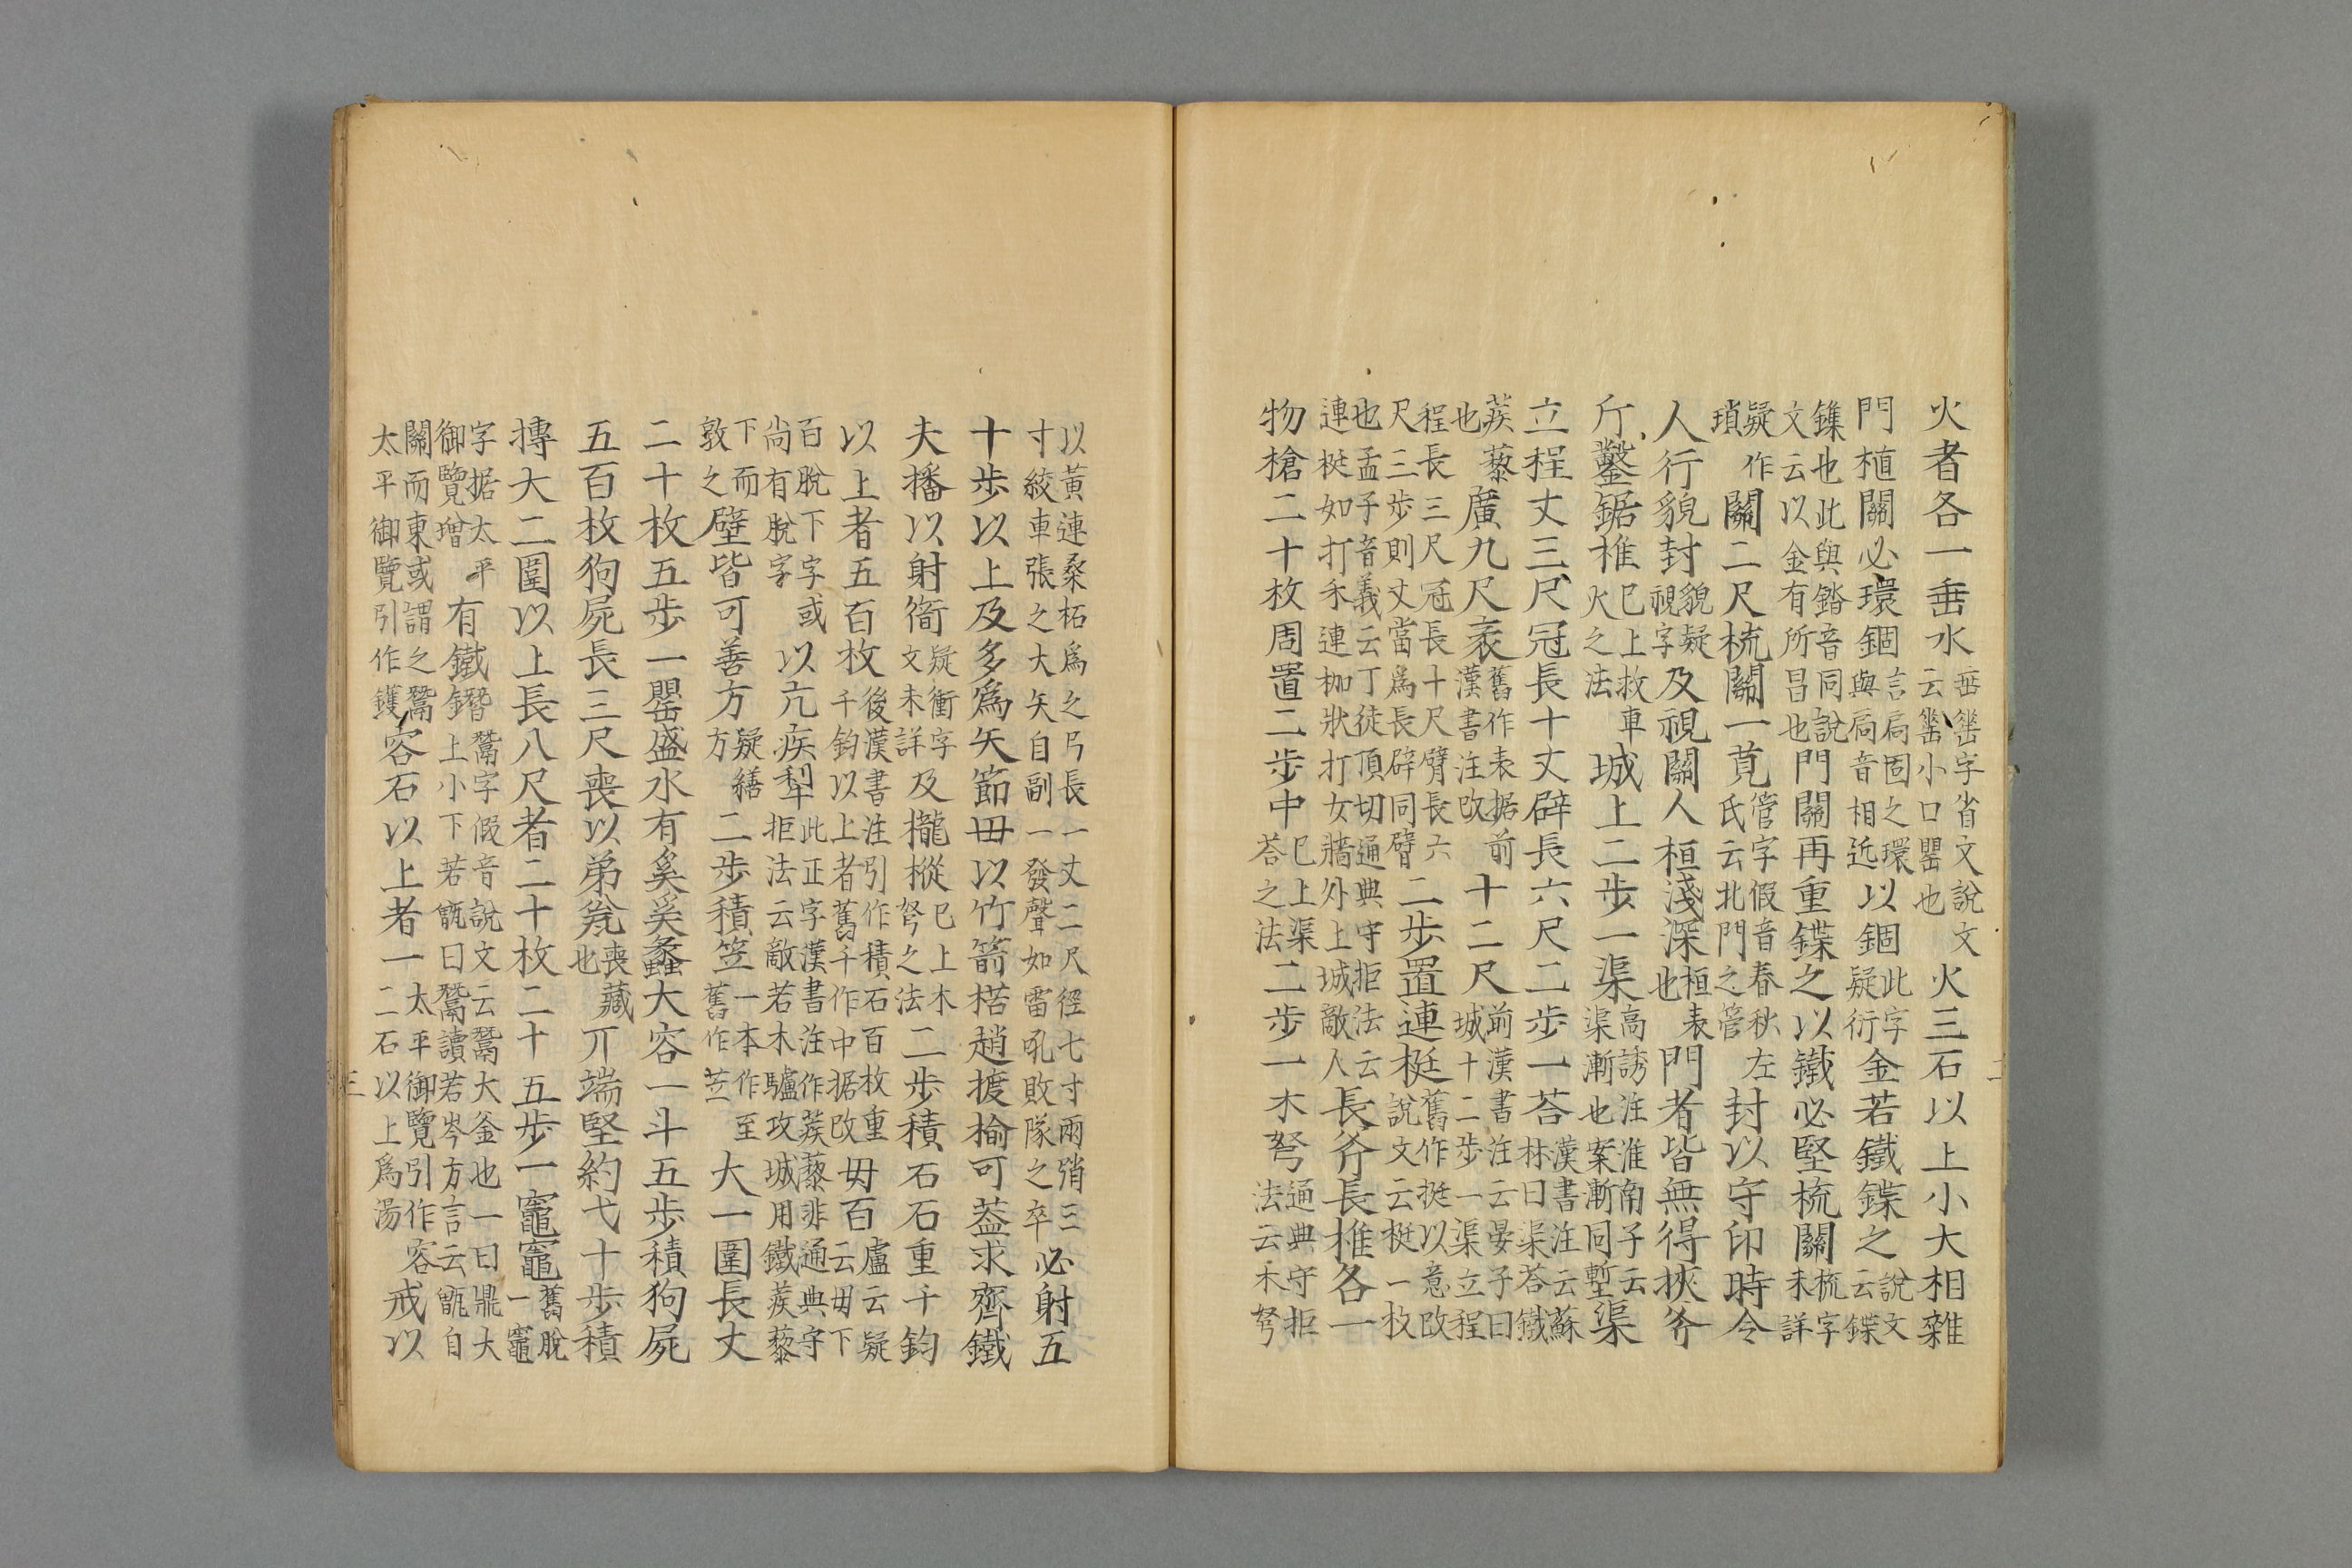 火者各一垂水垂𦉈字省文說文云𦉈小口罌也火三石以上小大相雜
門植關必環錮言扃固之環與扃音相近以錮此字疑衍金若鐵鍱之說文云鍱
鏶也此與鍇音同說文云以金有所冒也門關再重鍱之以鐵必堅梳關梳字未詳
疑作瑣關二尺梳關一莧管字假音春秋左氏云北門之管封以守印時令
人行貌封貌疑視字及視關人桓淺深桓表也門者皆無得挾斧
斤鑿鋸椎已上救車火之法城上二步一渠高誘注淮南子云渠漸也案漸同塹渠
立程丈三尺冠長十丈辟長六尺二步一荅漢書注云蘇林曰渠荅鐵
蒺藜也廣九尺袤舊作表据前漢書注改十二尺前漢書注云晏子曰城十二步一渠立程
程長三尺冠長十尺臂長六尺三步則丈當爲長辟同臂二步置連梃舊作挺以意改說文云梃一枚
也孟子音義云丁徒頂切通典守拒法云連梃如打禾連枷狀打女牆外上城敵人長斧長椎各一
物槍二十枚周置二步中已上渠荅之法二步一木弩通典守拒法云木弩
以黃連桑柘爲之弓長一丈二尺徑七寸兩弰三寸絞車張之大矢自副一發聲如雷吼敗隊之卒必射五
十步以上及多爲矢節毋以竹箭楛趙㨜榆可葢求齊鐵
夫播以射疑衝字文未詳及櫳樅已上木弩之法二步積石石重千鈞
以上者五百枚後漢書注引作積石百枚重千鈞以上者舊千作中据改毋百盧云疑云毋下
百脫下字或尚有脫字以亢疾犂此正字漢書注作蒺藜非通典守拒法云敵若木驢攻城用鐵蒺藜
下而敦之壁皆可善方疑繕方二步積笠一本作至舊作苙大一圍長丈
二十枚五步一罌盛水有奚奚蠡大容一斗五步積狗屍
五百枚狗屍長三尺喪以弟瓮喪藏也丌端堅約弋十步積
摶大二圍以上長八尺者二十枚二十五步一竈竈舊脫一竈
字据太平御覽增有鐵鐕鬵字假音說文云鬵大釜也一曰鼎大上小下若甑曰鬵讀若岑方言云甑自
關而東或謂之鬵太平御覽引作鑊容石以上者一太平御覽引作容二石以上爲湯戒以